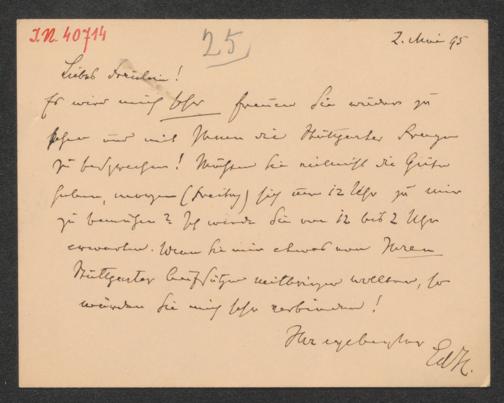 I.N. 40714
25
2. Mai 95
Liebes Fräulein!
Es wird mich sehr freuen Sie wieder zu
sehen und mit Ihnen die Stuttgarter
zu besprechen! Möchten Sie vielleicht die Güte
haben, morgen (Freitag) sich um 12 Uhr zu mir
zu bemühen? Ich werde Sie von 12 bis 2 Uhr
erwarten. Wenn Sie mir etwas von Ihren
Stuttgarter Aufsätzen mitbringen wollten, so
würden Sie mich sehr verbinden!
Ihr ergebenster
EdH.